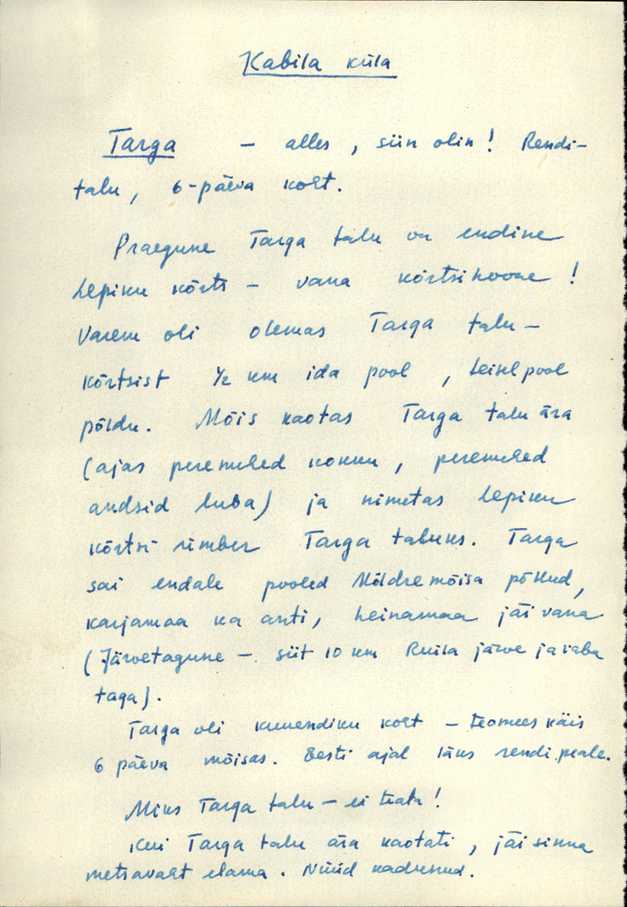 Kabila küla
Targa – alles, siin olin! Rendi-
talu, 6-päeva koht.
Praegune Targa talu on endine
Lepiku kõrts – vana kõrtsihoone!
Varem oli olemas Targa talu –
kõrtsist ½ km ida pool, teisel pool
põldu. Mõis kaotas Targa talu ära
(ajas peremehed kokku, peremehed
andsid luba) ja nimetas Lepiku
kõrtsi ümber Targa taluks. Targa
sai endale pooled Möldremõisa põllud,
karjamaa ka anti, heinamaa jäi vana
(Järvetagune – siit 10 km Ruila järve ja raba
taga).
Targa oli kuuendiku koht – teomees käis
6 päeva mõisas. Eesti ajal läks rendi peale.
Miks Targa talu – ei teata!
Kui Targa talu ära kaotati, jäi sinna
metsavaht elama. Nüüd kadunud.